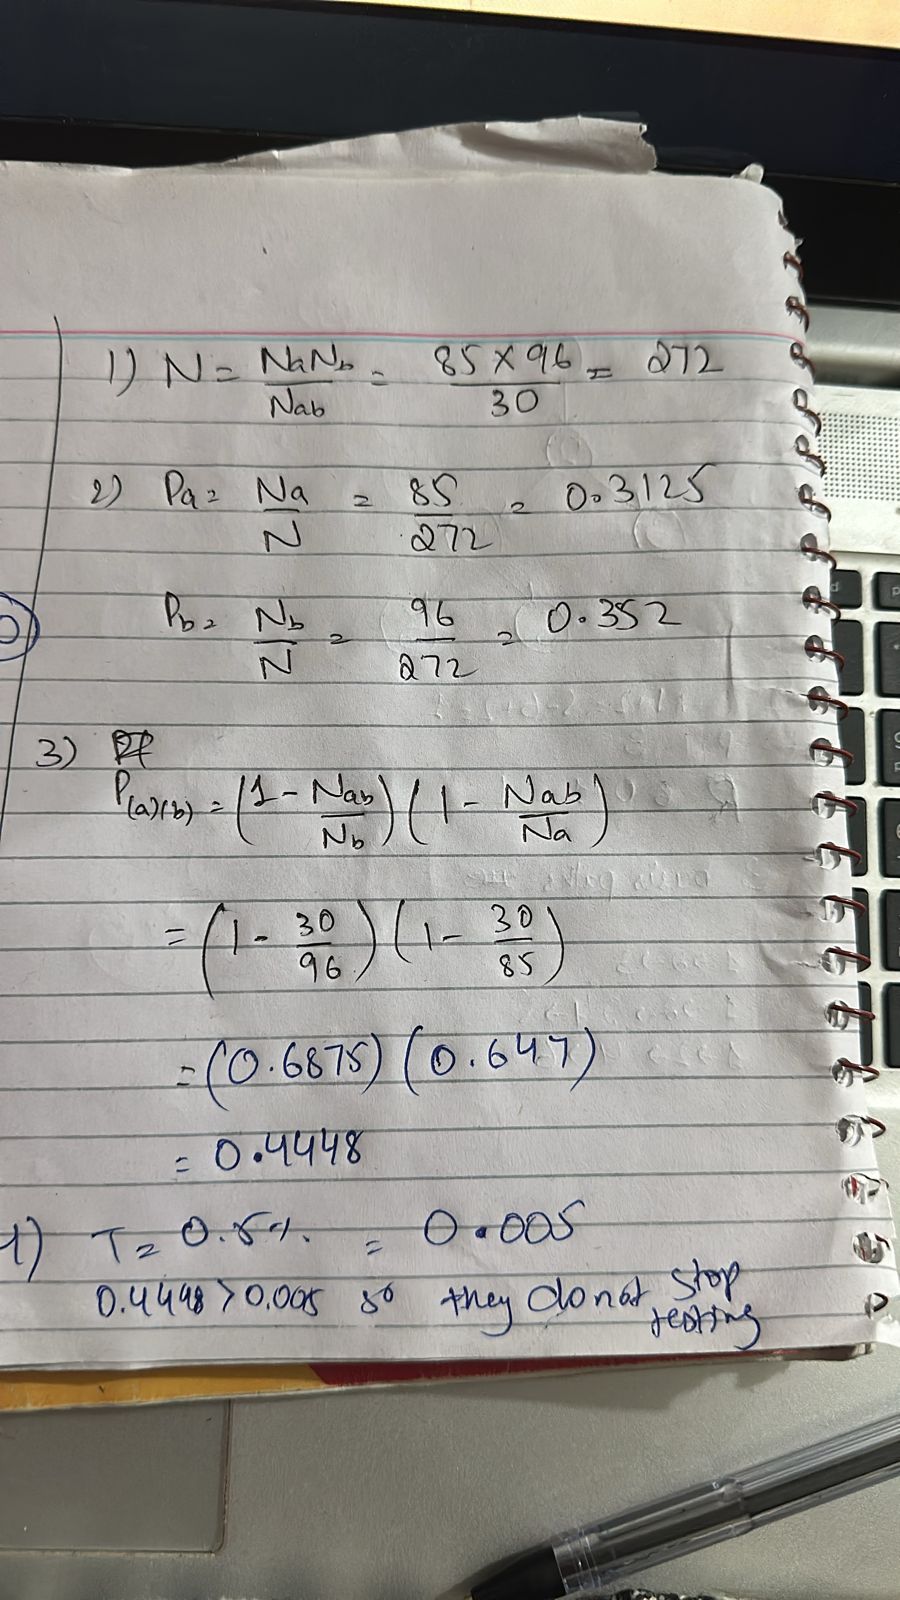 1) N = NaNb/Nab = 85 × 96/30 = 272
2) Pa = Na/N = 85/272 = 0.3125
Pb = Nb/N = 96/272 = 0.352
3)
P(a)(b) = (1 - Nab/Nb)(1 - Nab/Na)
= (1 - 30/96)(1 - 30/85)
= (0.6875)(0.647)
= 0.4448
T = 0.5%. = 0.005
0.4448 > 0.005 so they do not stop
testing